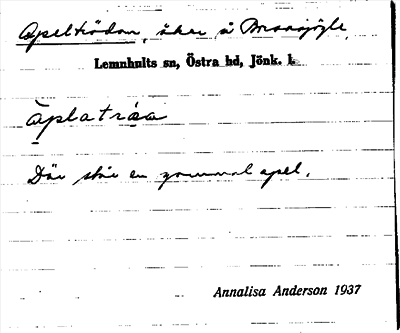 Apelträdan, åker å Broasjögle,
Lemnhults sn, Östra hd, Jönk. l.
àplatráa
Där står en gammal apel.
Annalisa Anderson 1937